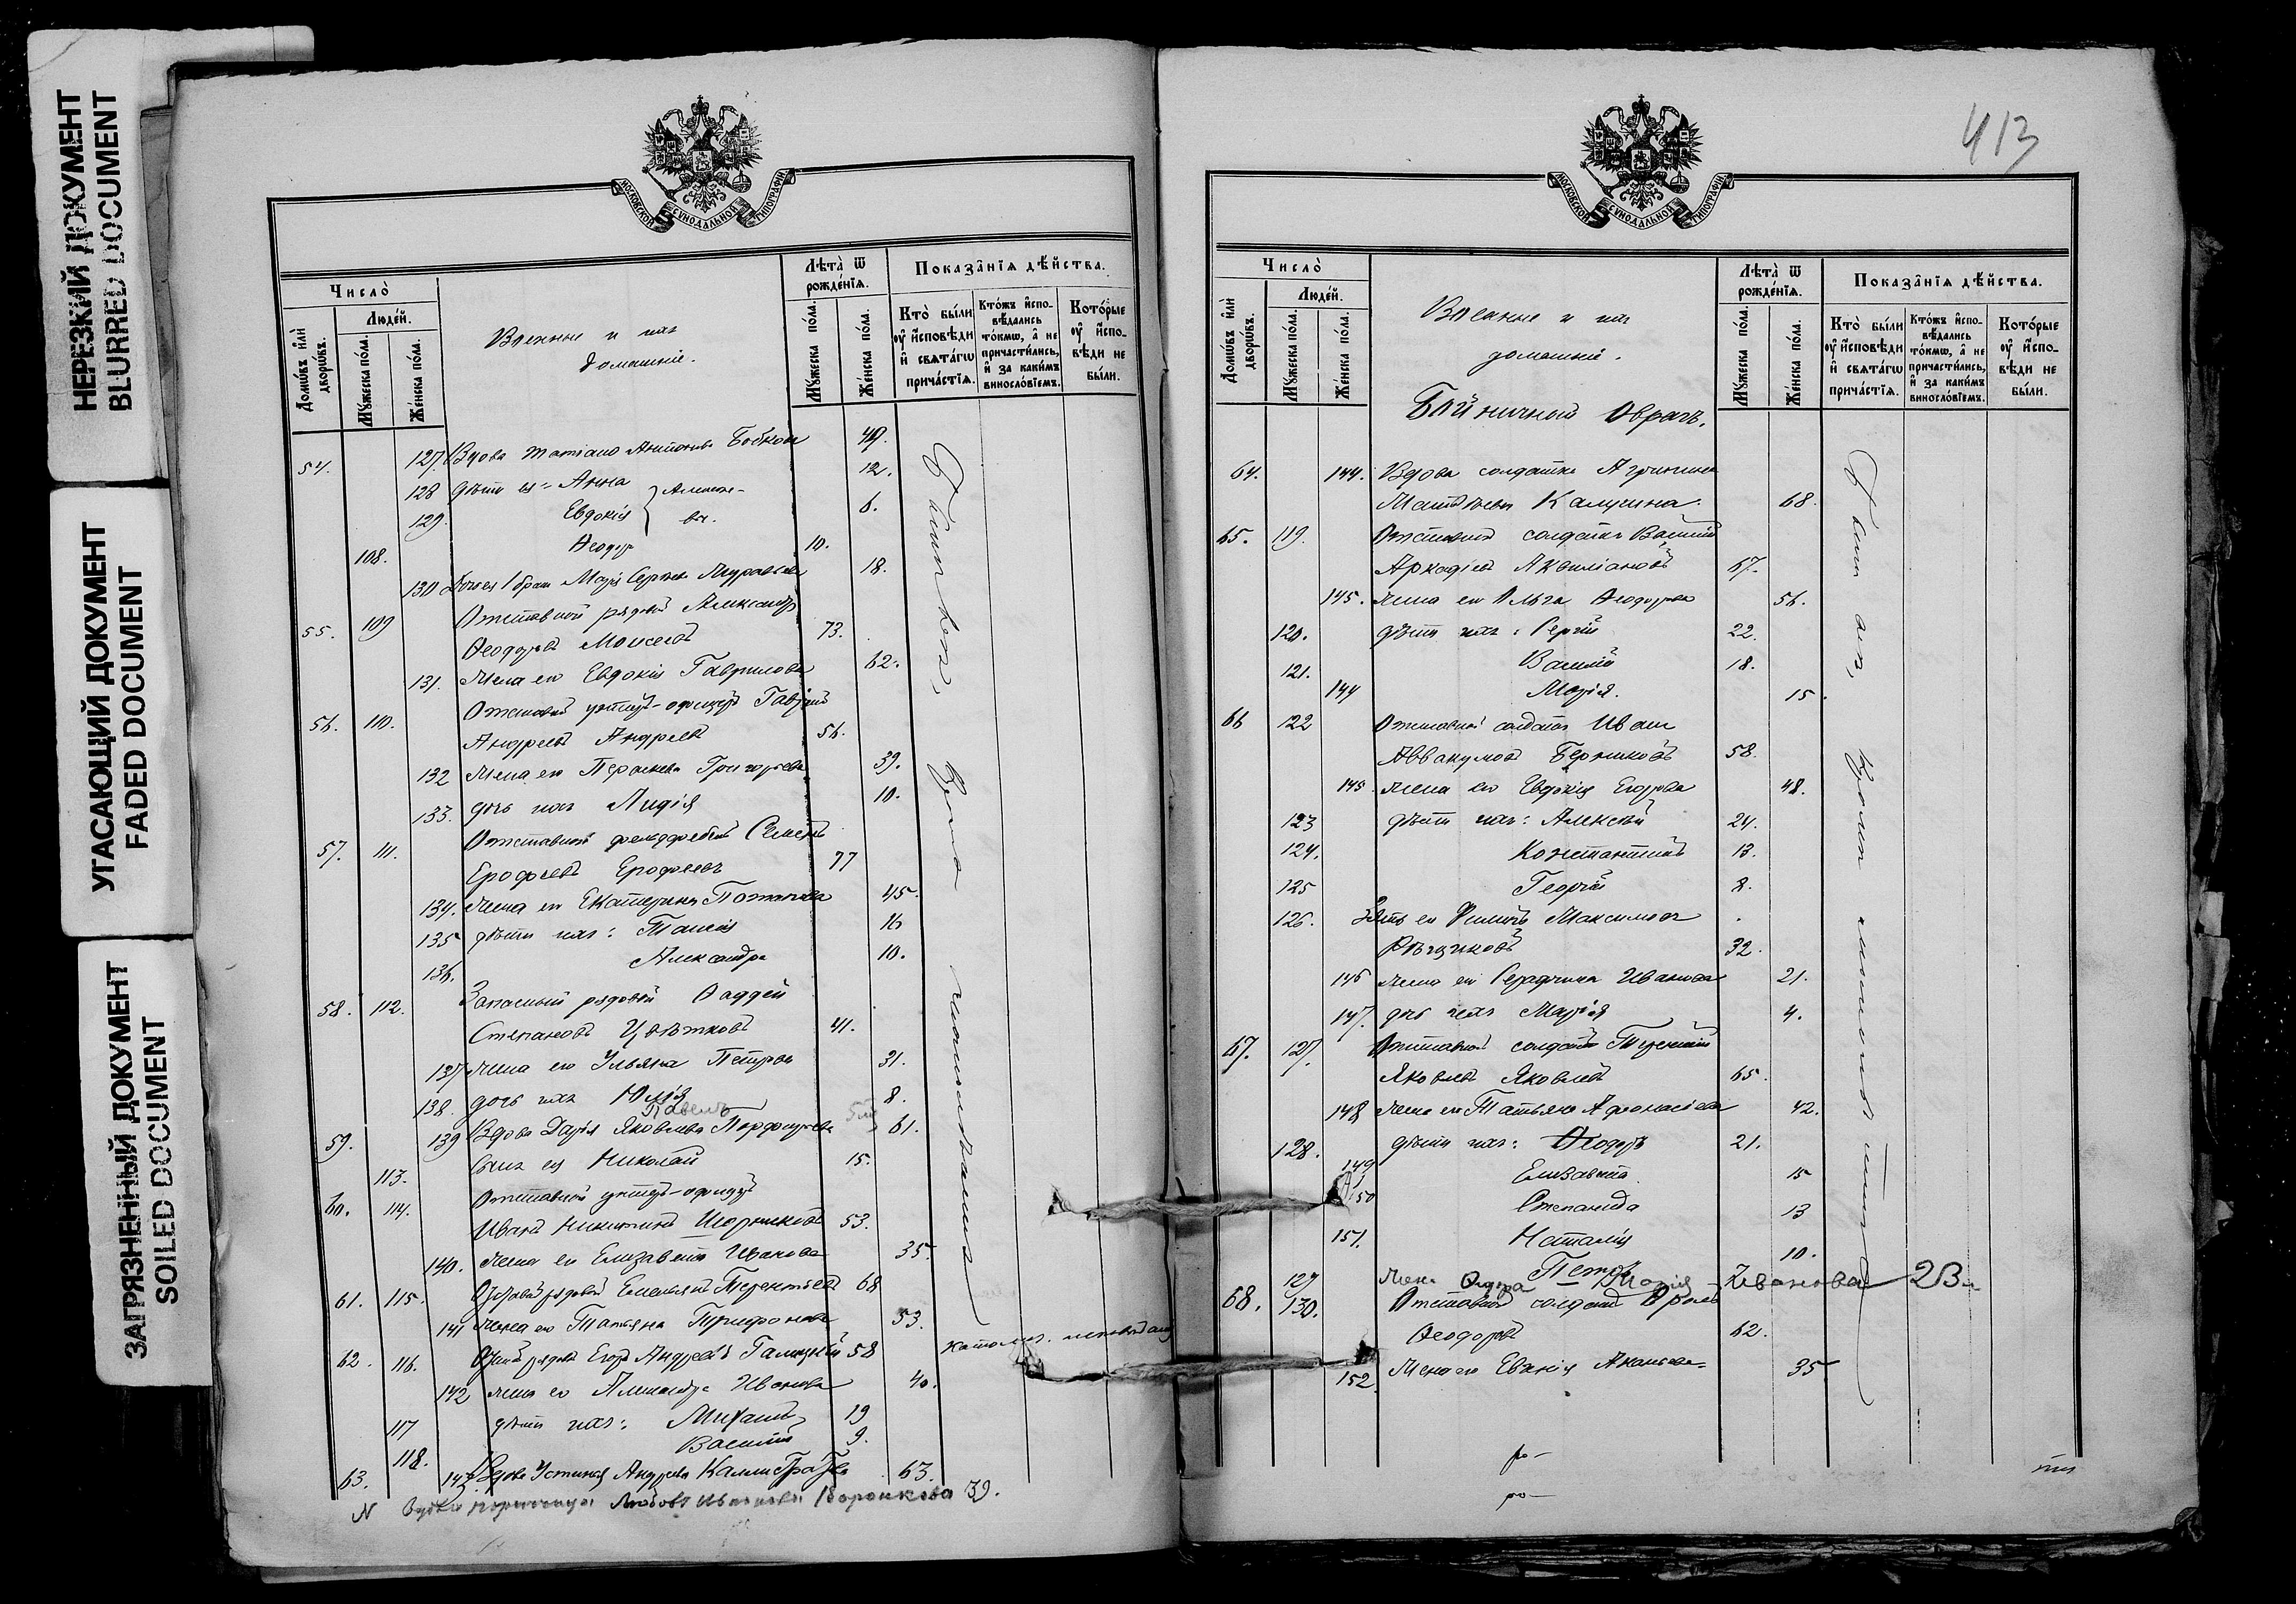 НЕРЕЗКИЙ ДОКУМЕНТ
BLURRED DOCUMENT
УГАСАЮЩИЙ ДОКУМЕНТ
FADED DOCUMENT
ЗАГРЯЗНЕННЫЙ ДОКУМЕНТ
SOILED DOCUMENT
МОСКОВСКОЙ СУНОДАЛЬНОЙ ТИПОГРАФІИ
Число̀
Домѡ́въ и҆лѝ дворѡ́въ.
Люде́й.
Мꙋ́жеска по́ла.
Же́нска по́ла.
Военные и ихъ
домашніе.
Лѣта̀ ѿ рожде́нїѧ.
Мꙋ́жеска по́ла.
Же́нска по́ла.
Показа̑нїѧ дѣ́йства.
Кто̀ бы́ли ᲂу҆ и҆сповѣ́ди и҆ свѧта́гѡ прича́стїѧ.
Кто́жъ и҆спо-вѣ́дались то́кмѡ, а҆ не причасти́лись, и҆ за каки́мъ виносло́вїемъ.
Кото́рые ᲂу҆ и҆спо-вѣ́ди не бы́ли.
54. 127. Вдова Татіана Антонова Бобкова 49.
128 дѣти ея: Анна 12.
129. Евдокія 6.
108. Ѳеодоръ 10.
130 Марія Сергѣева 18.
55. 109 Отставной рядовой Александръ
Ѳеодоровъ Моисеевъ 73.
131. Жена его Евдокія Гаврилова 62.
56. 110. Отставной унтеръ-офицеръ Гавріилъ
Андреевъ Андреевъ 56.
132 Жена его Параскева Григорьева 39.
133. дочь ихъ Лидія 10.
57. 111. Отставной фельдфебель Семенъ
Ерофеевъ Ерофеевъ 77
134. Жена его Екатерина 45.
135 дѣти ихъ: Таисія 16
136. Александра 10.
58. 112. Запасный рядовой Фаддей
Степановъ Цвѣтковъ 41.
137 Жена его Ульяна Петрова 31.
138. дочь ихъ Юлія 8.
Павелъ
59. 139 Вдова Дарія Яковлева Порфирьева 61.
113. Сынъ ея Николай 15.
60. 114. Отставной унтеръ-офицеръ
Иванъ Никитинъ 53.
140. Жена его Елизавета Иванова 35.
61. 115. рядовой Емельянъ Терентьевъ 68
141 Жена его Татьяна Трифонова 53.
62. 116. рядов. Егоръ Андреевъ Галицкій 58
142 Жена его Александра Иванова 40.
117 дѣти ихъ: Михаилъ 19
118. Василій 9.
63. 143 Вдова Устинья Андреева Каллистратова 63.
N Любовь Иванова Воронкова 39.
413
МОСКОВСКОЙ СУНОДАЛЬНОЙ ТИПОГРАФІИ
Число̀
Домѡ́въ и҆лѝ дворѡ́въ.
Люде́й.
Мꙋ́жеска по́ла.
Же́нска по́ла.
Военные и ихъ
домашніе.
Лѣта̀ ѿ рожде́нїѧ.
Мꙋ́жеска по́ла.
Же́нска по́ла.
Показа̑нїѧ дѣ́йства.
Кто̀ бы́ли ᲂу҆ и҆сповѣ́ди и҆ свѧта́гѡ прича́стїѧ.
Кто́жъ и҆спо-вѣ́дались то́кмѡ, а҆ не причасти́лись, и҆ за каки́мъ виносло́вїемъ.
Кото́рые ᲂу҆ и҆спо-вѣ́ди не бы́ли.
Бойничный Оврагъ.
64. 144. Вдова солдатка Агрипина
Матвѣева Калугина 68.
65. 119. Отставной солдатъ Василій
Аркадіевъ 67.
145. Жена его Ольга Ѳеодорова 56.
120. дѣти ихъ: Сергѣй 22.
121. Василій 18.
144 Марія. 15.
66 122 Отставной солдатъ Иванъ
Аввакумовъ Берниковъ 58.
145 Жена его Евдокія Егорова 48.
123 дѣти ихъ: Алексѣй 24.
124. Константинъ 13.
125 Георгій 8.
126. Зять его Филипъ Максимовъ
Рѣзчиковъ 32.
146 Жена его Серафима Иванова 21.
147. дочь ихъ Марія 4.
67. 127. Отставной солдатъ Терентій
Яковлевъ Яковлевъ 65.
148 Жена его Татьяна Афанасіева 42.
128. дѣти ихъ: Ѳеодоръ 21.
149 Елизавета. 15
150 Степанида 13
151. Наталія 10.
129 Петръ
Жена Марія Иванова 23
68. 130. Отставной солдатъ Фролъ
Ѳеодоровъ 62.
152. Жена его 35.